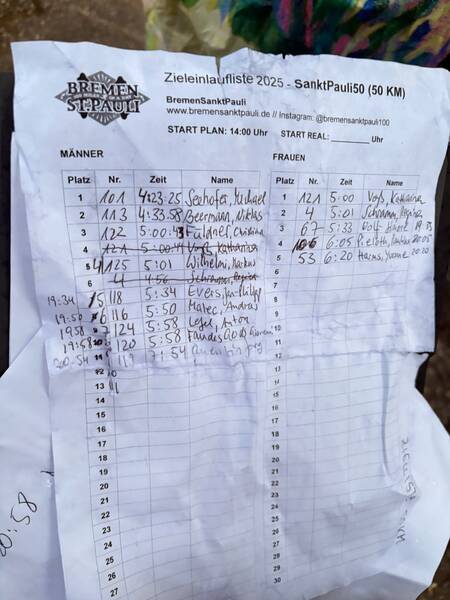 BREMEN
ST.PAULI
Zieleinlaufliste 2025 - SanktPauli50 (50 KM)
BremenSanktPauli
www.bremensanktpauli.de // Instagram: @bremensanktpauli100
START PLAN: 14:00 Uhr START REAL: ________ Uhr
MÄNNER
Platz Nr. Zeit Name
1 101 4:23:25 Seehofer, Michael
2 113 4:33:58 Beermann, Niklas
3 122 5:00:43
4 121 5:00:4 Voß, Katharina
5 4 125 5:01 Wilhelmi, Markus
6 4 4:56 Schramm, Regina
19:34 5 118 5:34 Evers, Jan-Philipp
19:50 6 116 5:50 Matec, Andras
19:58 7 124 5:58
19:58 8 120 5:58
20:54 9 119 7:54
12
13
14
15
16
17
18
19
20
21
22
23
24
25
26
27
20:58
FRAUEN
Platz Nr. Zeit Name
1 121 5:00 Voß, Katharina
2 4 5:01 Schramm, Regina
3 67 5:33 Wolf 19:33
4 6:05 20:05
5 53 6:20 20:20
6
7
8
9
10
11
12
13
14
15
16
17
18
19
20
21
22
23
24
25
26
27
28
29
30